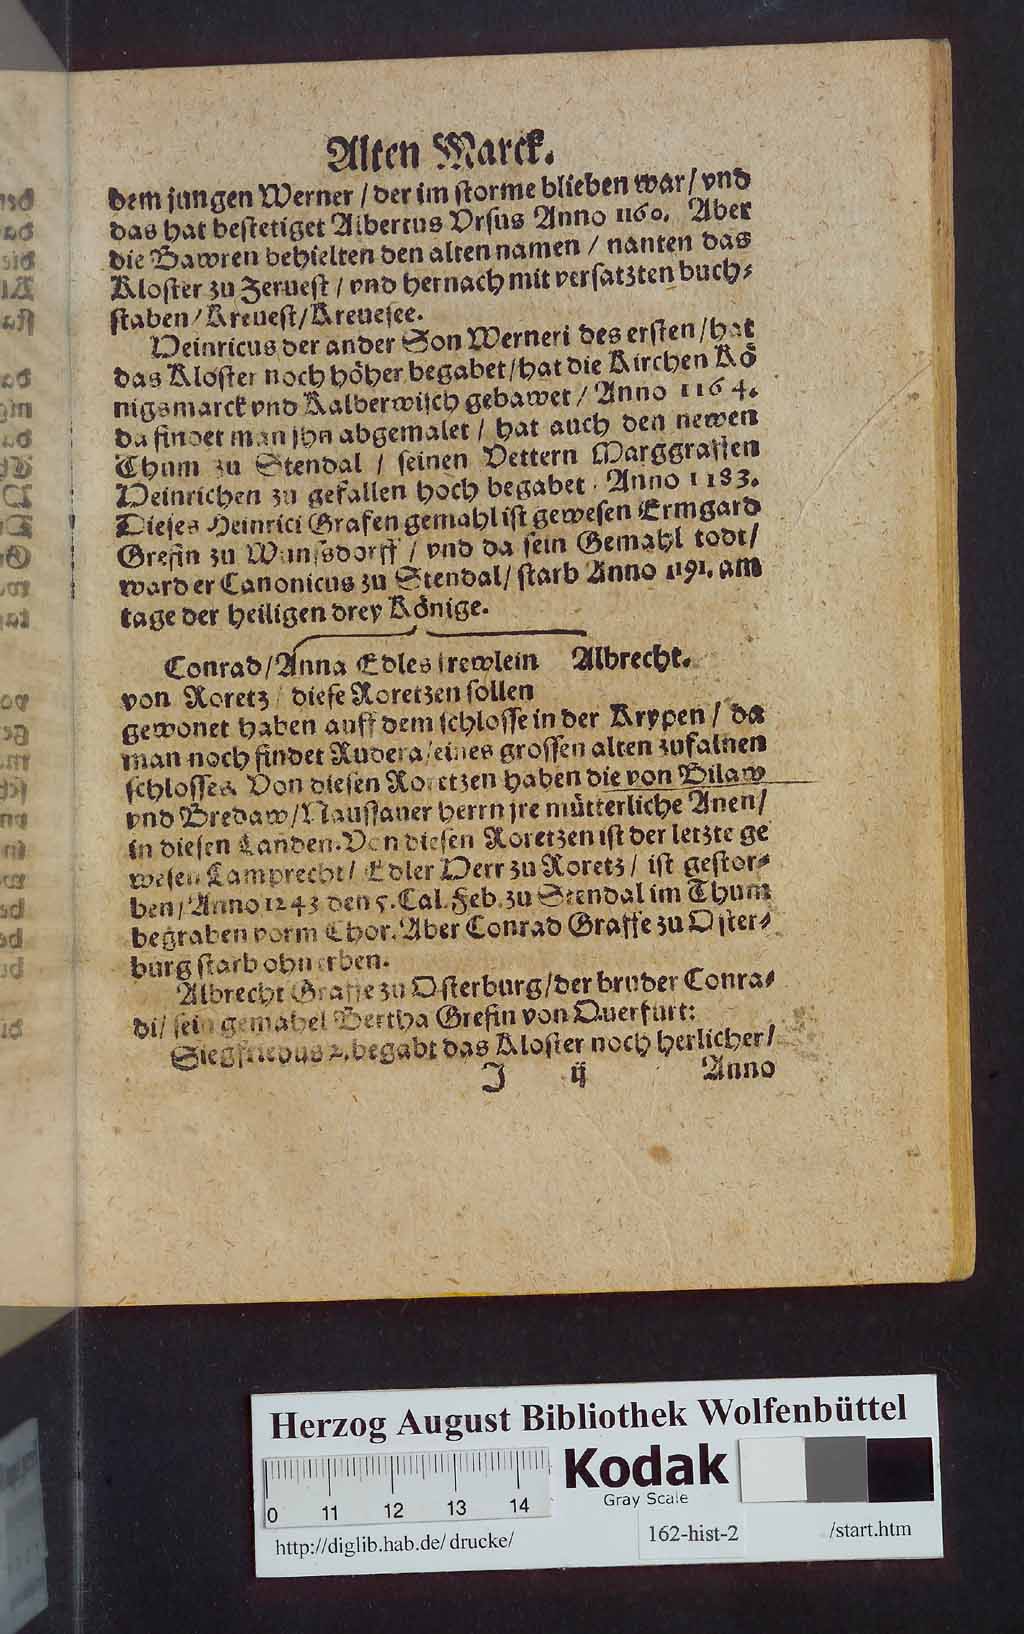 Alten Marck.
dem jungen Werner / der im storme blieben war / vnd
das hat bestetiget Albertus Vrsus Anno 1160. Aber
die Bawren behielten den alten namen / nanten das
Kloster zu Zeruest / vnd hernach mit versatzten buch-
staben / Kreuest / Kreuesee.
Heinricus der ander Son Werneri des ersten / hat
das Kloster noch höher begabet / hat die Kirchen Kö
nigsmarck vnd Kalberwisch gebawet / Anno 1164.
da findet man jhn abgemalet / hat auch den newen
Thum zu Stendal / seinen Vettern Marggraffen
Heinrichen zu gefallen hoch begabet. Anno 1183.
Dieses Heinrici Grafen gemahl ist gewesen Ermgard
Grefin zu Wunsdorff / vnd da sein Gemahl todt /
ward er Canonicus zu Stendal / starb Anno 1191. am
tage der heiligen drey Könige.
Conrad / Anna Edles frewlein Albrecht.
von Roretz / diese Roretzen sollen
gewonet haben auff dem schlosse in der Krypen / da
man noch findet Rudera / eines grossen alten zufalnen
schlosses. Von diesen Roretzen haben die von Bilaw
vnd Bredaw / Naussauer herrn jre mütterliche Anen /
in diesen Landen. Von diesen Roretzen ist der letzte ge
wesen Lamprecht / Edler Herr zu Roretz / ist gestor-
ben / Anno 1243 den 5. Cal. Feb. zu Stendal im Thum
begraben vorm Chor. Aber Conrad Graffe zu Oster-
burg starb ohn erben.
Albrecht Graffe zu Osterburg / der bruder Conra-
di / sein gemahel Bertha Grefin von Querfurt:
Siegfriedus 2. begabt das Kloster noch herlicher /
J ij Anno
Herzog August Bibliothek Wolfenbüttel
Kodak
Gray Scale
0 11 12 13 14
http://diglib.hab.de/ drucke/ 162-hist-2 /start.htm